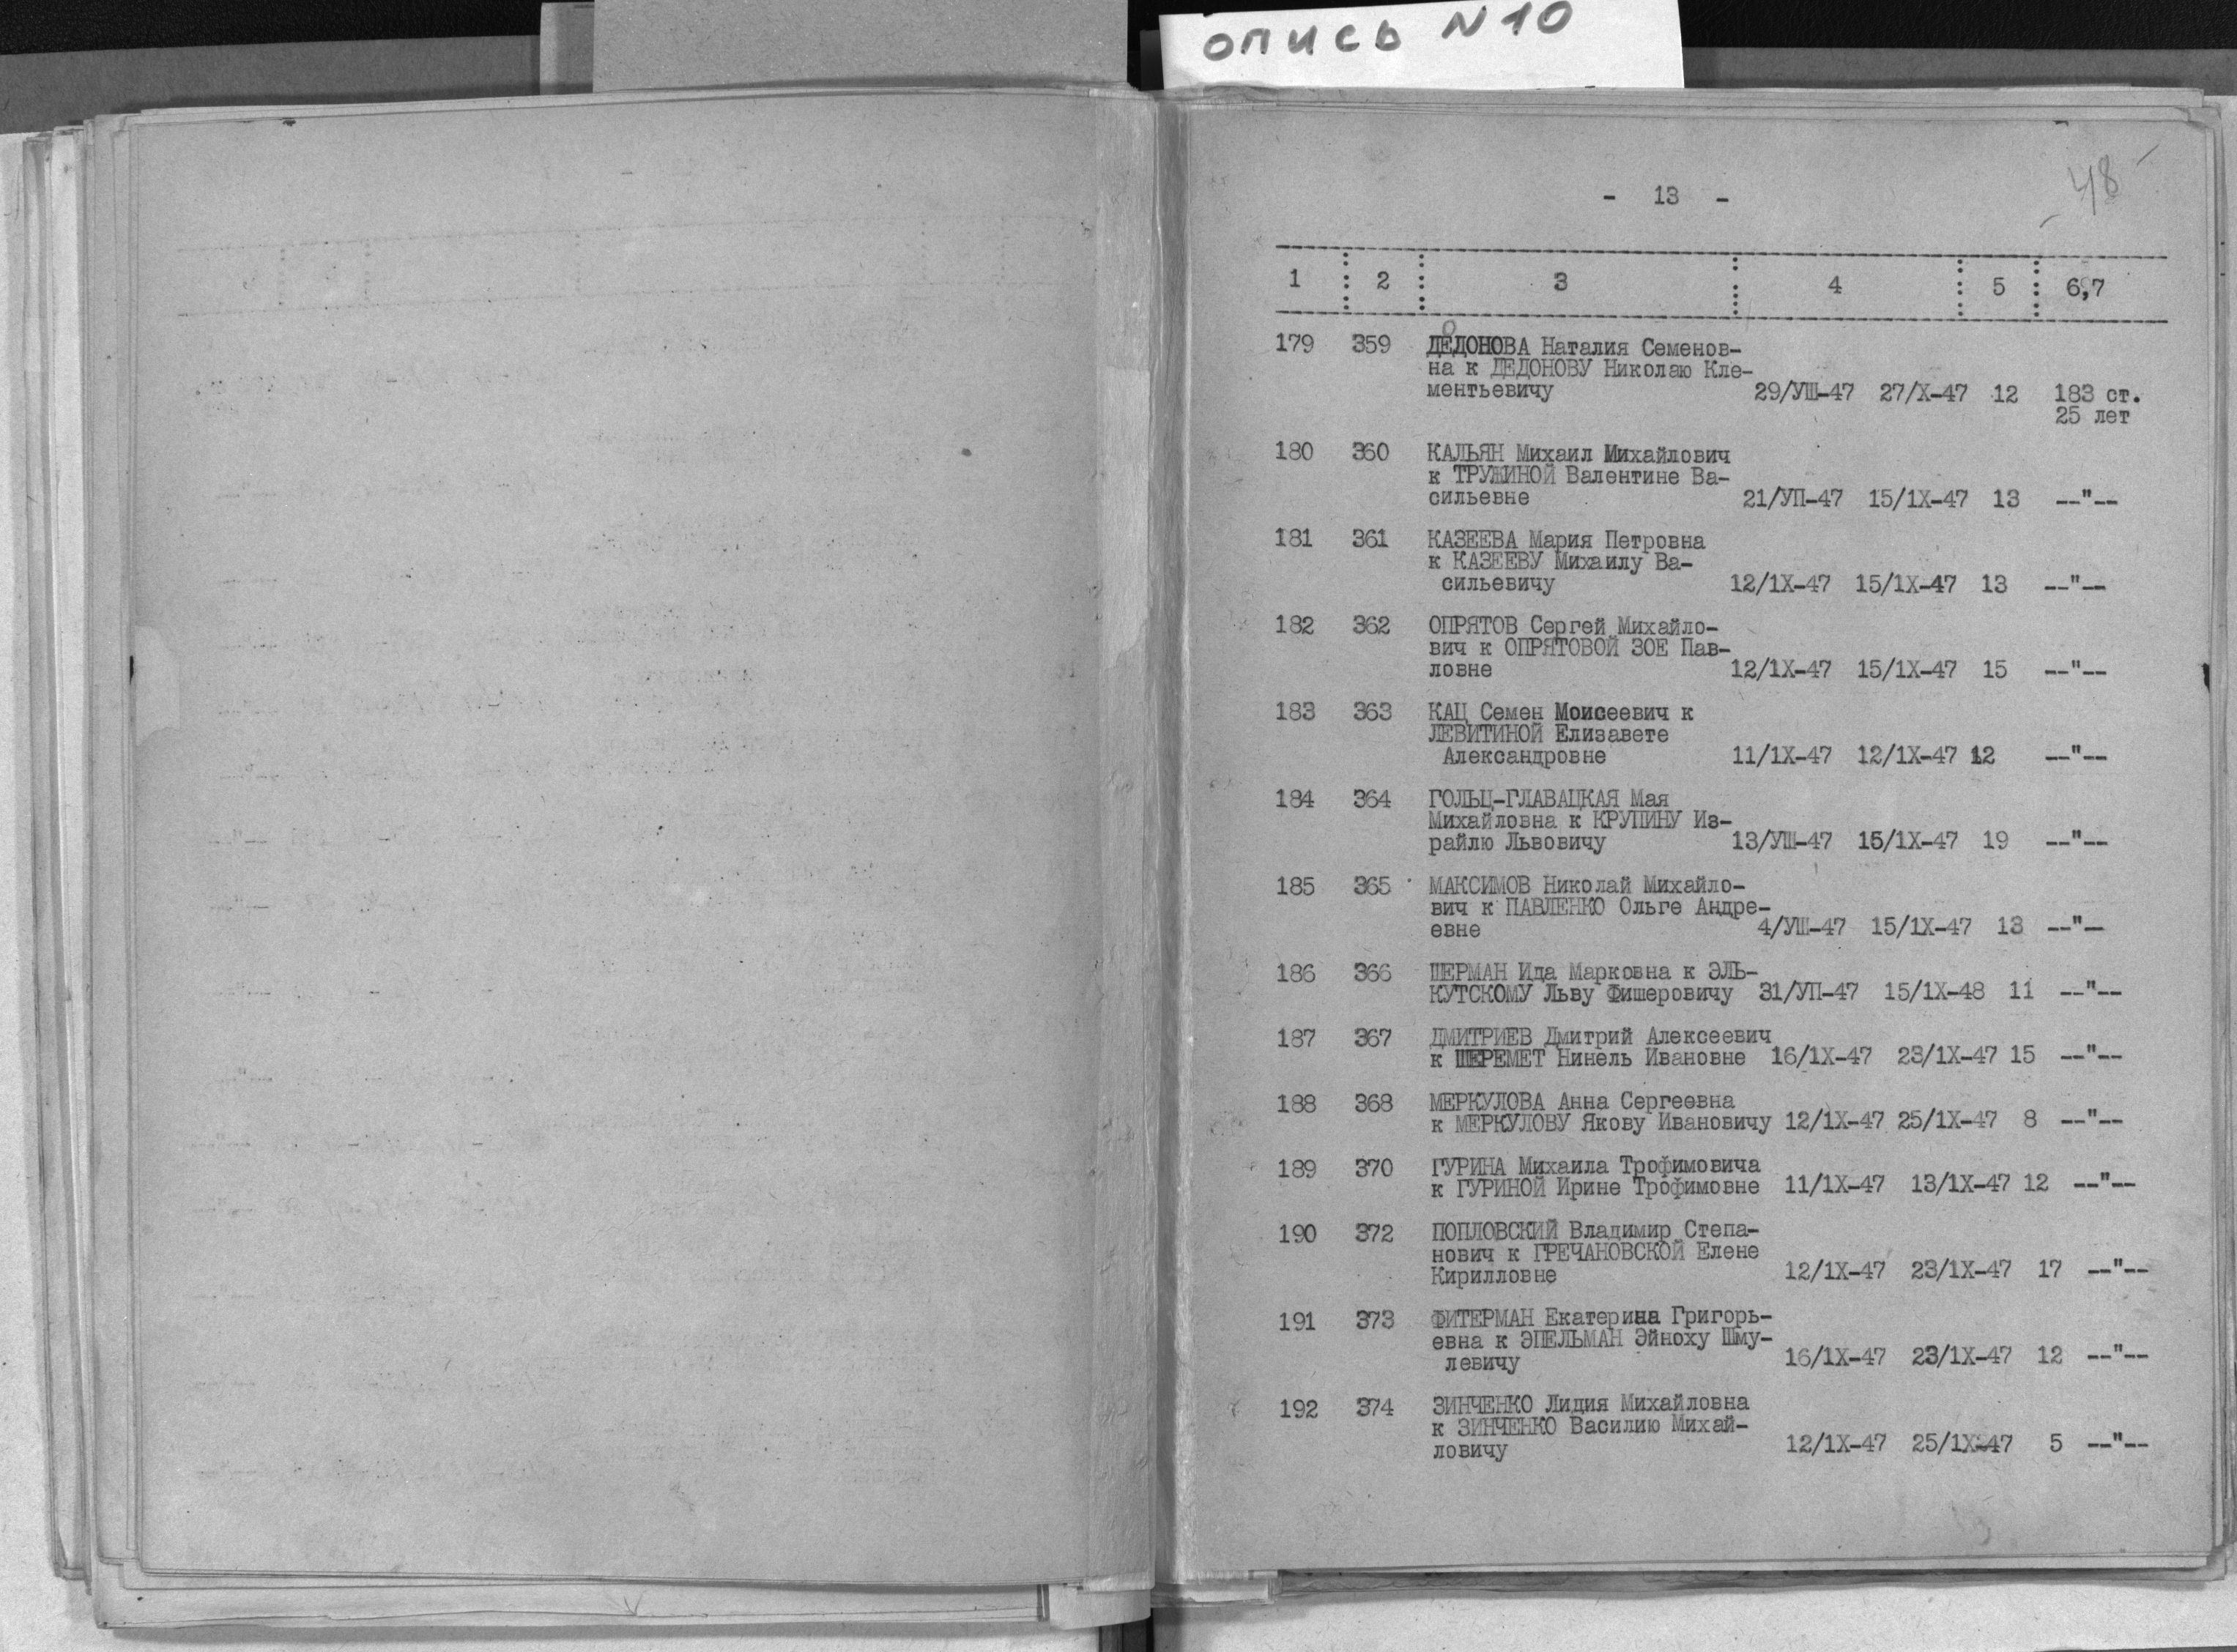 опись N10
48
- 13 -
1 2 3 4 5 6,7
179 359 ДЕДОНОВА Наталия Семенов-
на к ДЕДОНОВУ Николаю Кле-
ментьевичу 29/УШ-47 27/Х-47 12 183 ст.
25 лет
180 360 КАЛЬЯН Михаил Михайлович
к ТРУЖИНОЙ Валентине Ва-
сильевне 21/УП-47 15/1Х-47 13 --"--
181 361 КАЗЕЕВА Мария Петровна
к КАЗЕЕВУ Михаилу Ва-
сильевичу 12/1Х-47 15/1Х-47 13 --"--
182 362 ОПРЯТОВ Сергей Михайло-
вич к ОПРЯТОВОЙ ЗОЕ Пав-
ловне 12/1Х-47 15/1Х-47 15 --"--
183 363 КАЦ Семен Моисеевич к
ЛЕВИТИНОЙ Елизавете
Александровне 11/1Х-47 12/1Х-47 12 --"--
184 364 ГОЛЬЦ-ГЛАВАЦКАЯ Мая
Михайловна к КРУПИНУ Из-
райлю Львовичу 13/УШ-47 15/1Х-47 19 --"--
185 365 МАКСИМОВ Николай Михайло-
вич к ПАВЛЕНКО Ольге Андре-
евне 4/УШ-47 15/1Х-47 13 --"--
186 366 ШЕРМАН Ида Марковна к ЭЛЬ-
КУТСКОМУ Льву Фишеровичу 31/УП-47 15/1Х-48 11 --"--
187 367 ДМИТРИЕВ Дмитрий Алексеевич
к ШЕРЕМЕТ Нинель Ивановне 16/1Х-47 23/1Х-47 15 --"--
188 368 МЕРКУЛОВА Анна Сергеевна
к МЕРКУЛОВУ Якову Ивановичу 12/1Х-47 25/1Х-47 8 --"--
189 370 ГУРИНА Михаила Трофимовича
к ГУРИНОЙ Ирине Трофимовне 11/1Х-47 13/1Х-47 12 --"--
190 372 ПОПЛОВСКИЙ Владимир Степа-
нович к ГРЕЧАНОВСКОЙ Елене
Кирилловне 12/1Х-47 23/1Х-47 17 --"--
191 373 ФИТЕРМАН Екатерина Григорь-
евна к ЭПЕЛЬМАН Эйноху Шму-
левичу 16/1Х-47 23/1Х-47 12 --"--
192 374 ЗИНЧЕНКО Лидия Михайловна
к ЗИНЧЕНКО Василию Михай-
ловичу 12/1Х-47 25/1Х-47 5 --"--